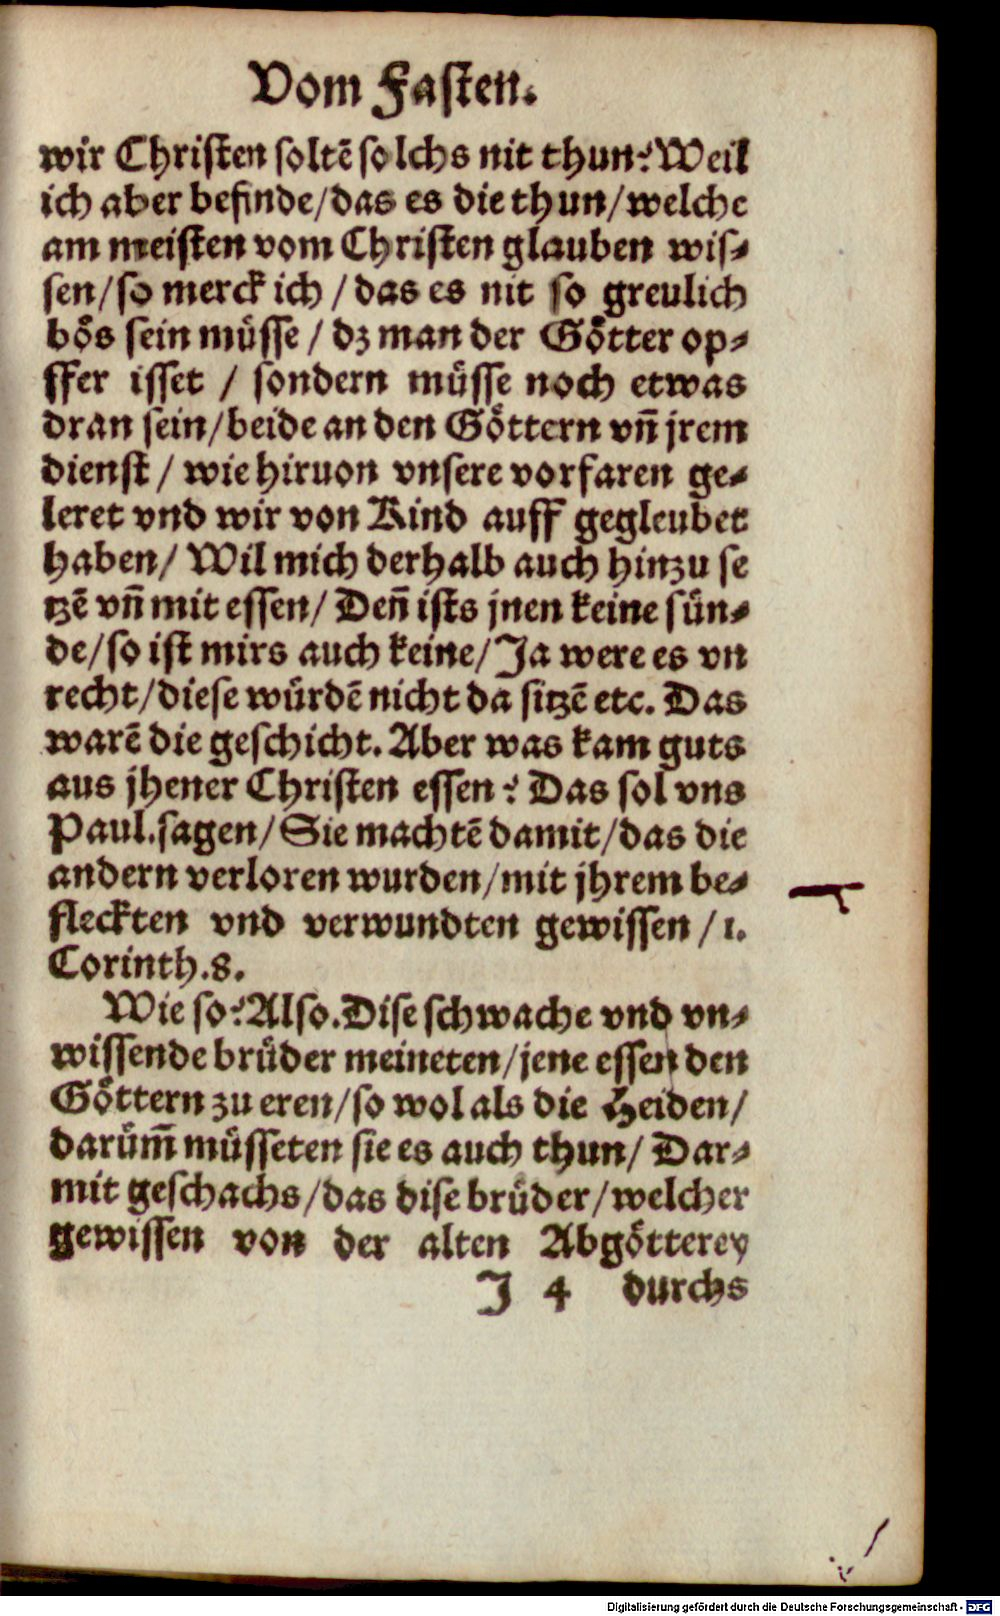 Vom Fasten.
wir Christen soltē solchs nit thun? Weil
ich aber befinde/das es die thun/welche
am meisten vom Christen glauben wis⸗
sen/so merck ich/das es nit so greulich
bös sein müsse/dz man der Götter op⸗
ffer isset/sondern müsse noch etwas
dran sein/beide an den Göttern vn̄ jrem
dienst/wie hiruon vnsere vorfaren ge⸗
leret vnd wir von Kind auff gegleubet
haben/Wil mich derhalb auch hinzu se
tzē vn̄ mit essen/Den̄ ists jnen keine sün⸗
de/so ist mirs auch keine/Ja were es vn
recht/diese würdē nicht da sitzē etc. Das
warē die geschicht. Aber was kam guts
aus jhener Christen essen? Das sol vns
Paul. sagen/Sie machtē damit/das die
andern verloren wurden/mit jhrem be⸗
fleckten vnd verwundten gewissen/1.
Corinth. 8.
Wie so? Also. Dise schwache vnd vn⸗
wissende brüder meineten/jene essen den
Göttern zu eren/so wol als die Heiden/
darüm̄ müsseten sie es auch thun/Dar⸗
mit geschachs/das dise brüder/welcher
gewissen von der alten Abgötterey
J 4 durchs
Digitalisierung gefördert durch die Deutsche Forschungsgemeinschaft - DFG